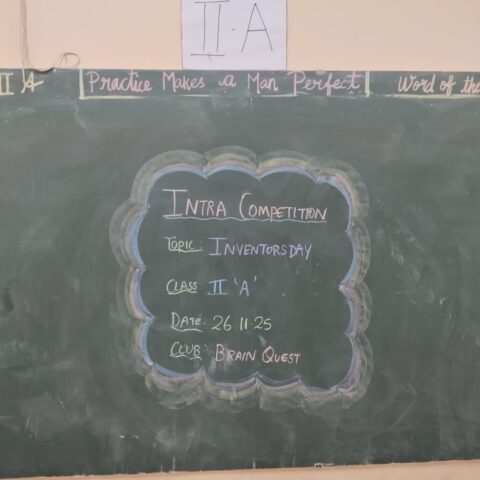 II-A
II A
Practice Makes a Man Perfect!
Word of the
INTRA COMPETITION
TOPIC: INVENTORS DAY
CLASS: II 'A'
DATE: 26 11 25
CLUB: BRAIN QUEST